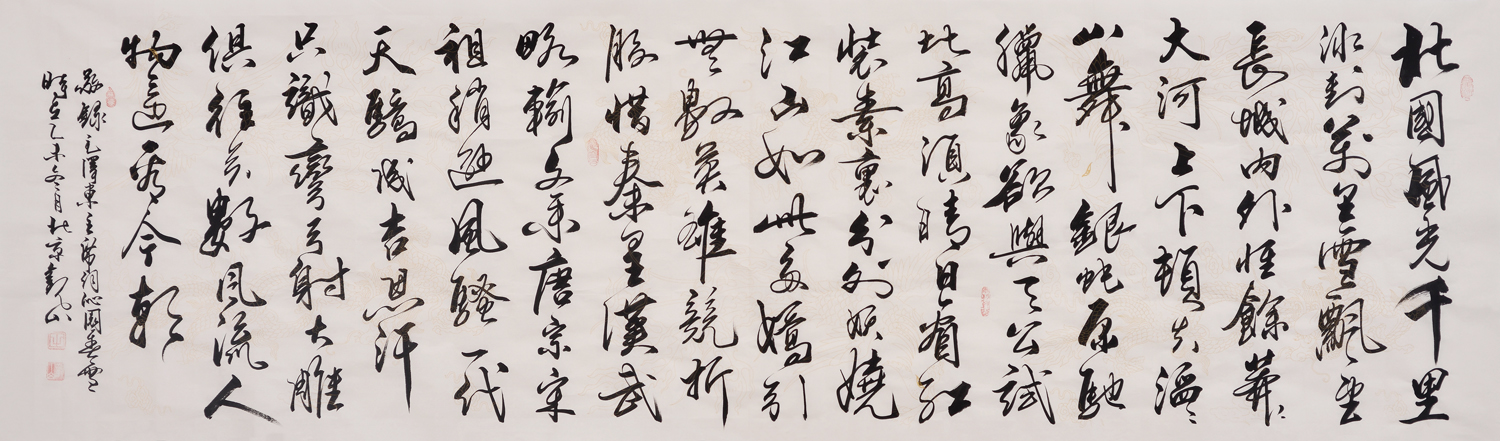 北國風光千里
冰封萬里雪飄望
長城內外惟餘莽莽
大河上下頓失滔滔
山舞銀蛇原馳
臘象欲與天公試
比高須晴日看紅
裝素裹分外妖嬈
江山如此多嬌引
無數英雄競折
腰惜秦皇漢武
略輸文采唐宗宋
祖稍遜風騷一代
天驕成吉思汗
只識彎弓射大雕
俱往矣數風流人
物還看今朝
錄毛澤東主席詞沁園春雪
時在乙未冬月北京山